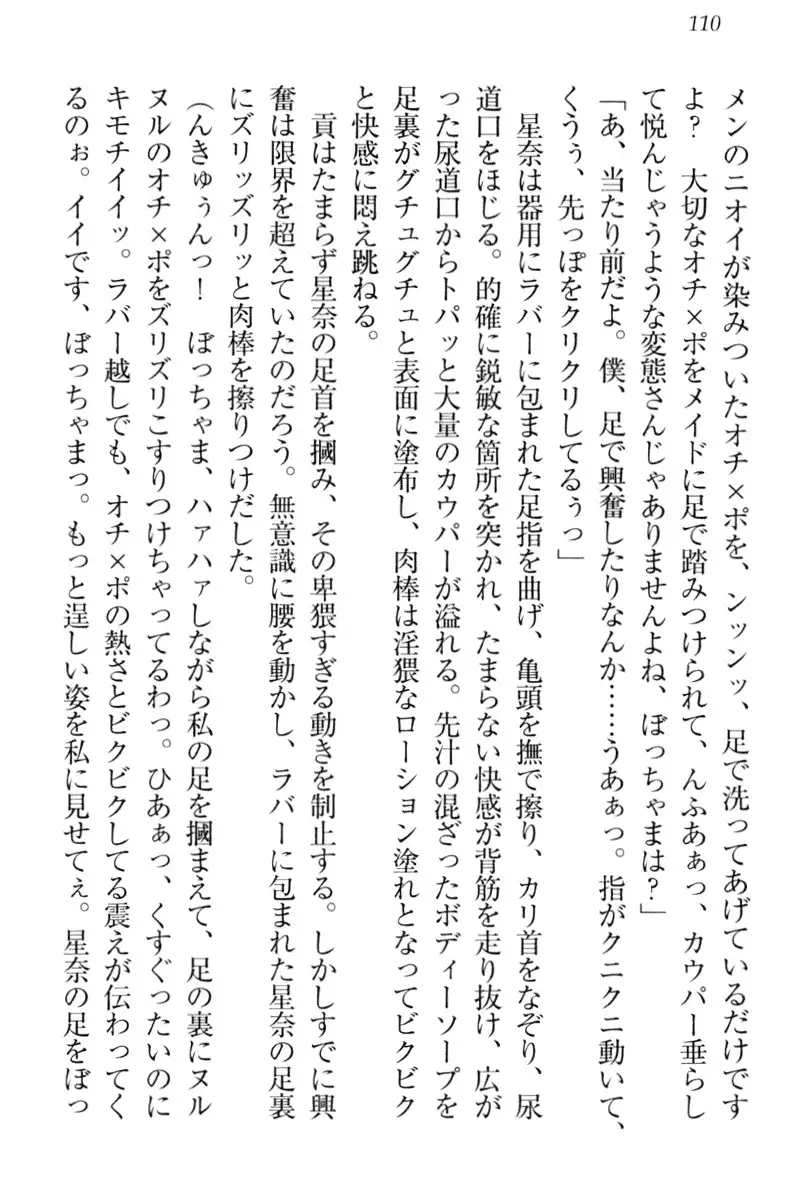 110
メンのニオイが染みついたオチ×ポを、ンッンッ、足で洗ってあげているだけです
よ？　大切なオチ×ポをメイドに足で踏みつけられて、んふあぁっ、カウパー垂らし
て悦んじゃうような変態さんじゃありませんよね、ぼっちゃまは？」
「あ、当たり前だよ。僕、足で興奮したりなんか……うあぁっ。指がクニクニ動いて、
くうぅ、先っぽをクリクリしてるぅっ」
　星奈は器用にラバーに包まれた足指を曲げ、亀頭を撫で擦り、カリ首をなぞり、尿
道口をほじる。的確に鋭敏な箇所を突かれ、たまらない快感が背筋を走り抜け、広が
った尿道口からトパッと大量のカウパーが溢れる。先汁の混ざったボディーソープを
足裏がグチュグチュと表面に塗布し、肉棒は淫猥なローション塗れとなってビクビク
と快感に悶え跳ねる。
　貢はたまらず星奈の足首を摑み、その卑猥すぎる動きを制止する。しかしすでに興
奮は限界を超えていたのだろう。無意識に腰を動かし、ラバーに包まれた星奈の足裏
にズリッズリッと肉棒を擦りつけだした。
（んきゅぅんっ！　ぼっちゃま、ハァハァしながら私の足を摑まえて、足の裏にヌル
ヌルのオチ×ポをズリズリこすりつけちゃってるわっ。ひあぁっ、くすぐったいのに
キモチイイッ。ラバー越しでも、オチ×ポの熱さとビクビクしてる震えが伝わってく
るのぉ。イイです、ぼっちゃまっ。もっと逞しい姿を私に見せてぇ。星奈の足をぼっ